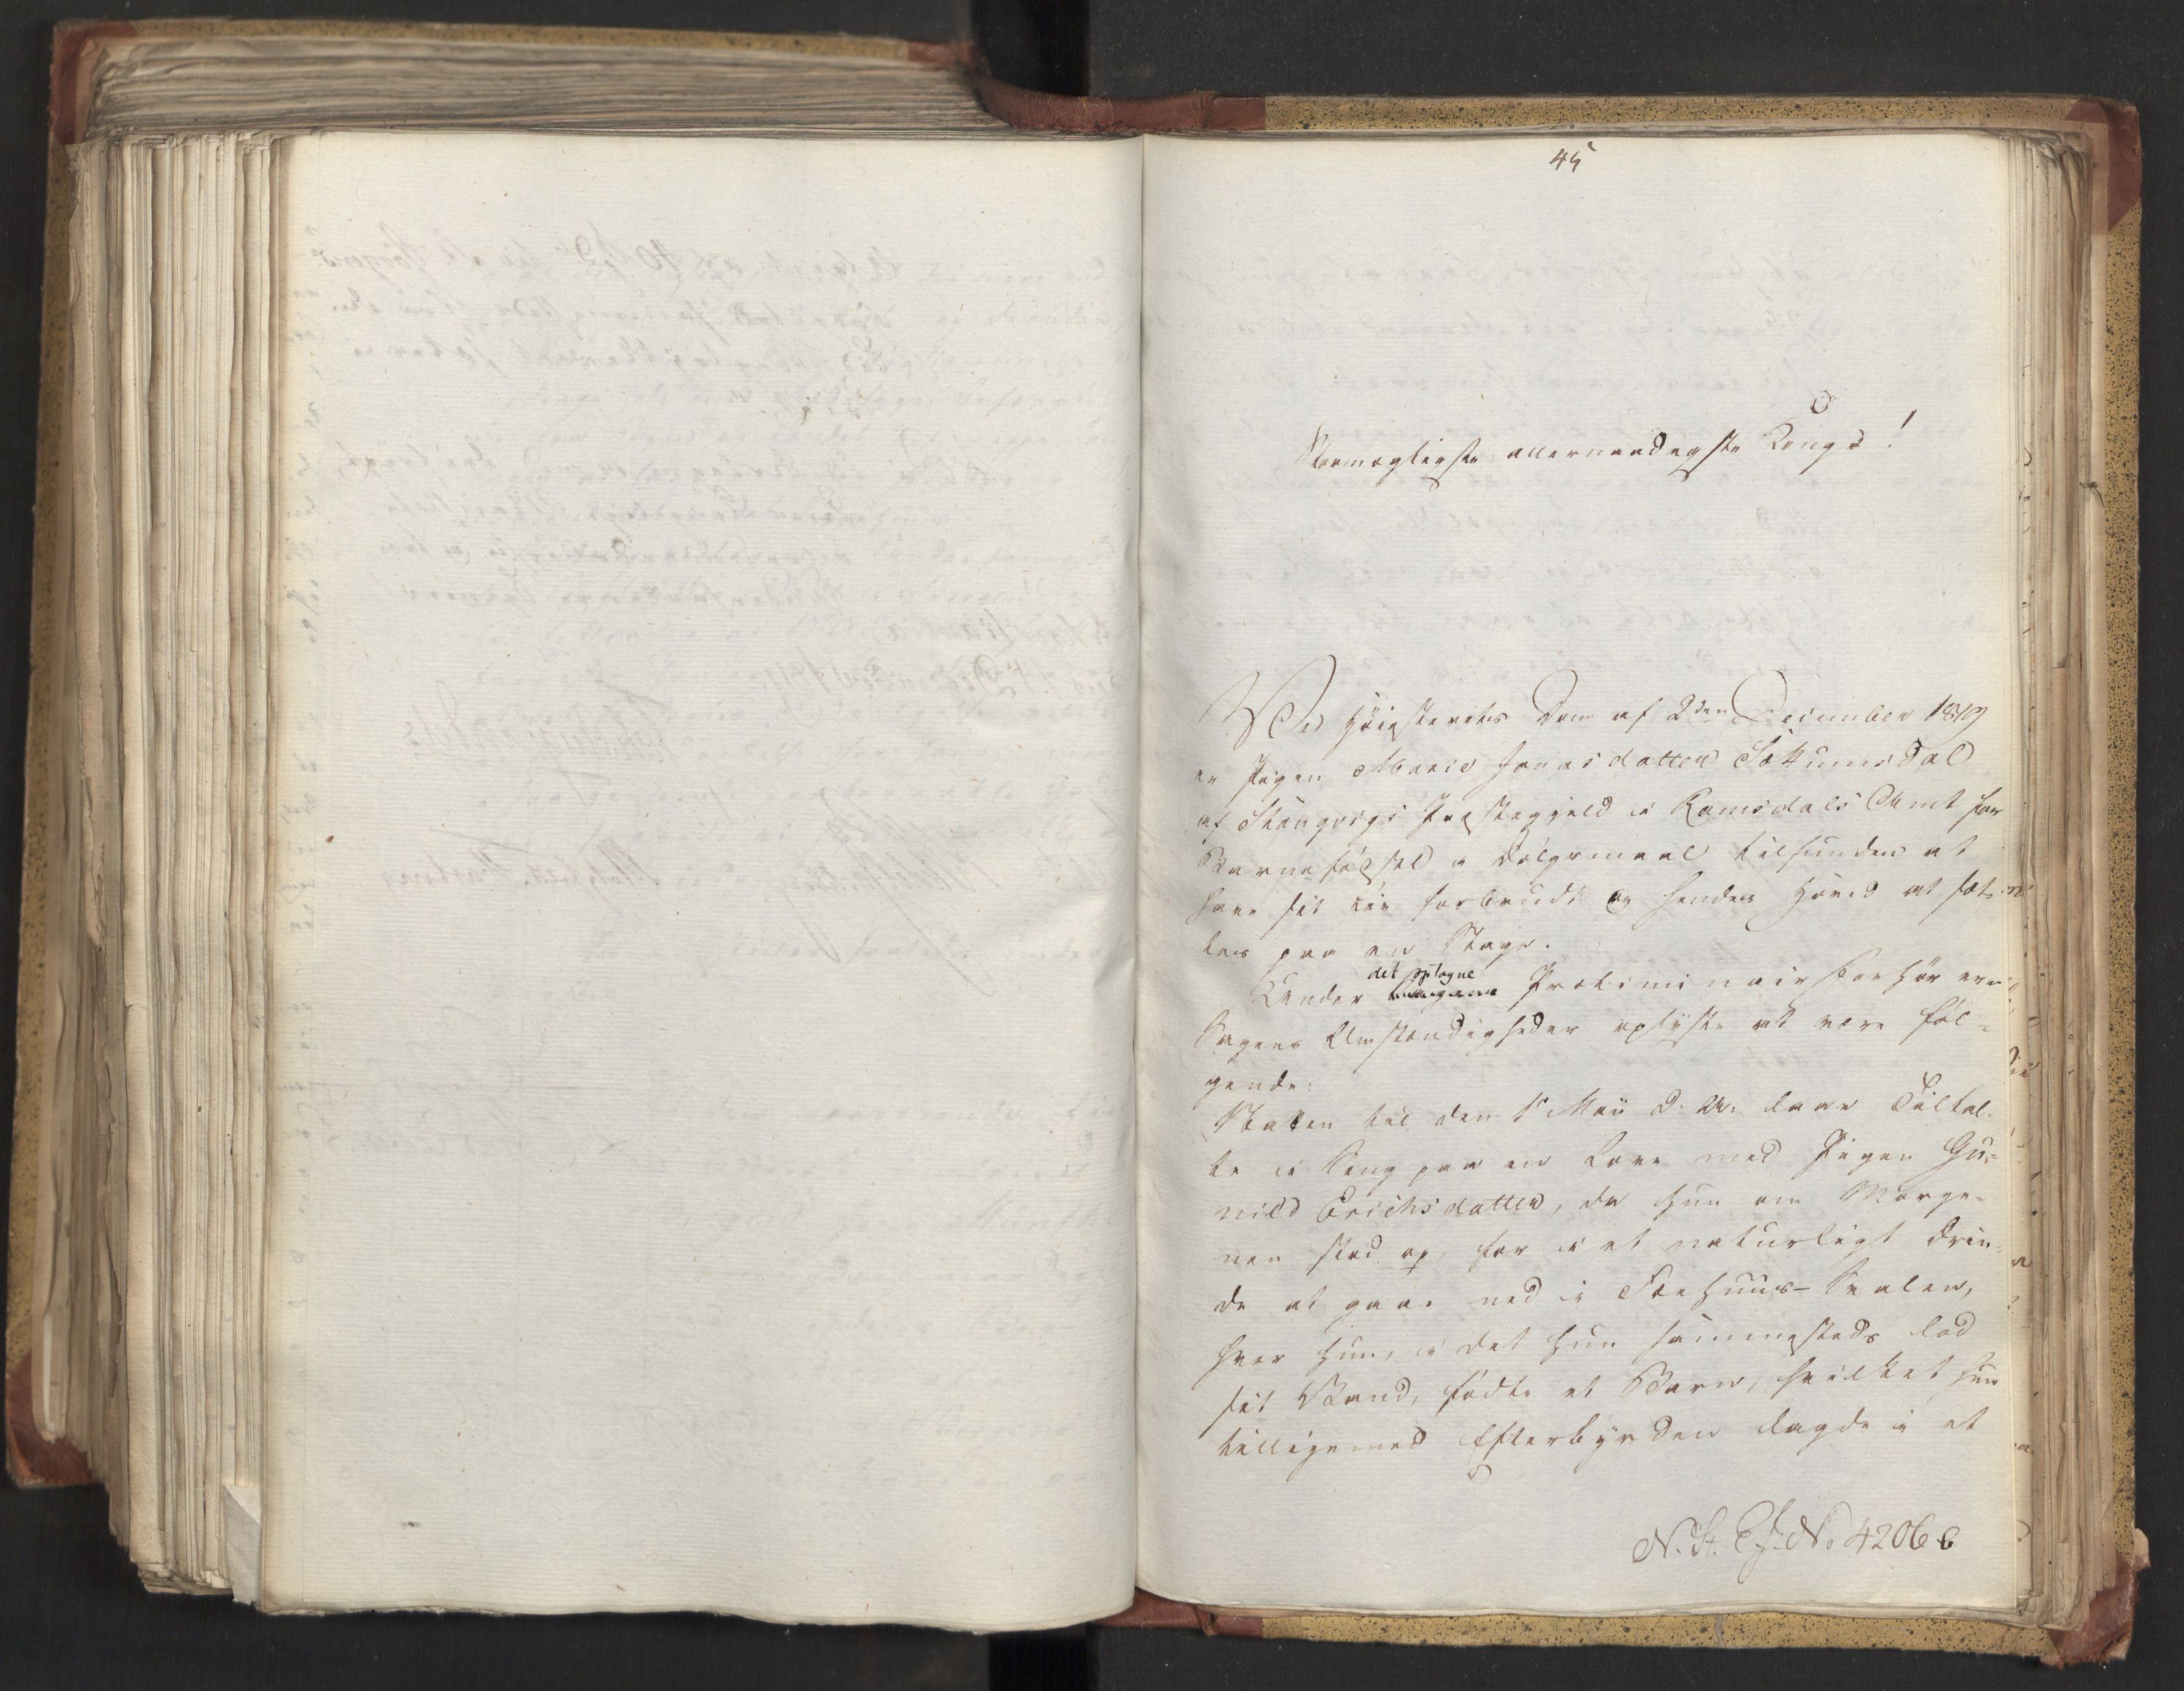 45
Stormægtigste allernaadigste Konge!
Ved Høiesterets Dom af 2den December 1819
er Pigen Marie Jonasdatter Sættumsdal
af Stangvigs Præstegjeld i Romsdals Amt for
Barnefødsel i Dølgsmaal tilfunden at
have sit Liv forbrudt og hendes Hoved at sæt-
tes paa en Stage.
det optagne
Under Præliminairforhør ere
Sagens Omstændigheder oplyste at være føl-
gende:
Natten til den 1 Maii d. A. laae Tiltal-
te i Seng paa en Løve med Pigen Gu-
nild Erichsdatter, da hun om Morge-
nen stod op, for i et naturligt Ærin-
de at gaae ned i Fæehuus-Svalen,
hvor hun, i det hun sammesteds lod
sit Vand, fødte et Barn, hvilket hun
tilligemed Efterbyrden lagde i et
N. St. E. J. No 4206 b